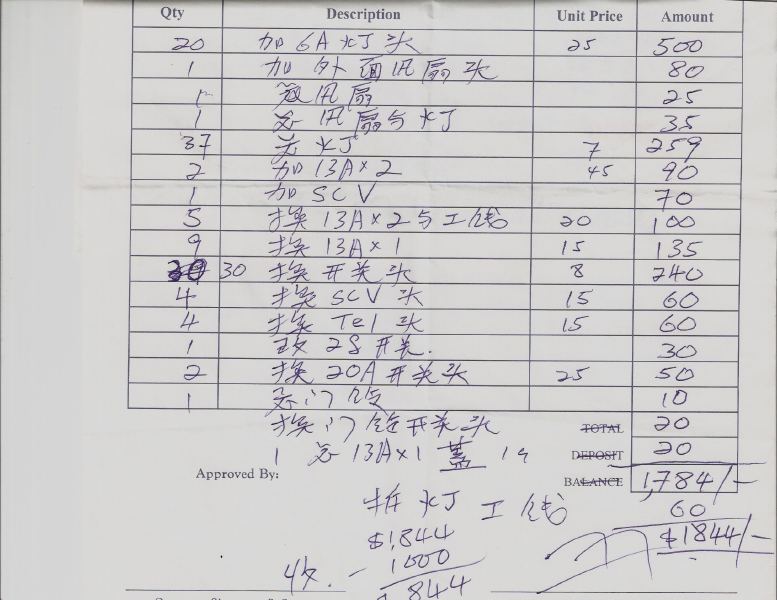 Qty Description Unit Price Amount
20 加 6A 灯头 25 500
1 加外面风扇头 80
1 风扇 25
1 风扇与灯 35
37 灯 7 259
2 加 13A×2 45 90
1 加 SCV 70
5 换 13A×2 与工钱 20 100
9 换 13A×1 15 135
30 30 换开关头 8 240
4 换 SCV 头 15 60
4 换 Tel 头 15 60
1 改 2S 开关. 30
2 换 20A 开关头 25 50
1 门铃 10
换门铃开关头 TOTAL 20
1 13A×1 盖 DEPOSIT 20
Approved By: BALANCE 1,784/-
拆灯工钱 60
$1,844 $1844/-
收. - 1000
844